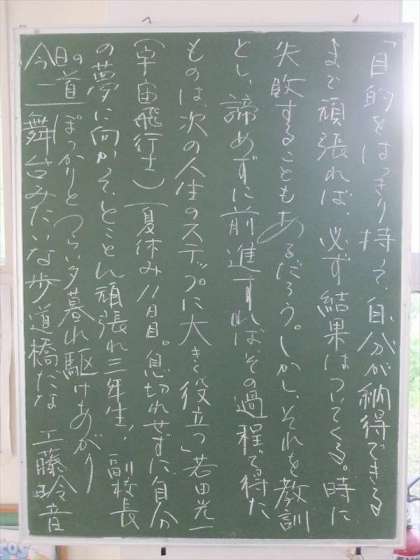 「目的をはっきり持って、自分が納得できる
まで頑張れば、必ず結果はついてくる。時に
失敗することもあるだろう。しかし、それを教訓
とし、諦めずに前進すればその過程で得た
ものは次の人生のステップに大きく役立つ」若田光一
(宇宙飛行士)夏休み11日目。息切れせずに自分
の夢に向かって、とことん頑張れ三年生! 副校長
今日の一道 ぽっかりとつらい夕暮れ駆けあがり
舞台みたいな歩道橋だな 工藤玲音